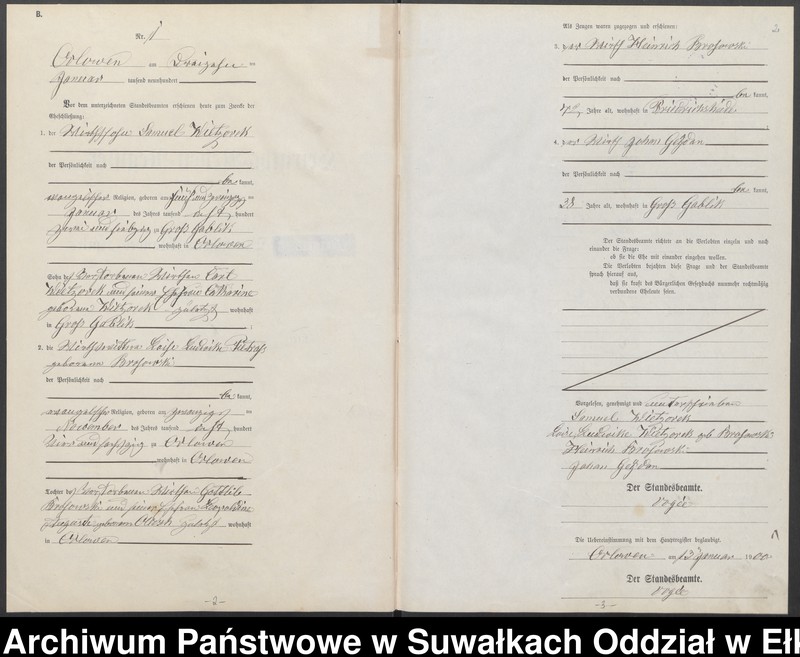 B.
Nr. 1
Orlowen am Dreizehnten
Januar tausend neunhundert
Vor dem unterzeichneten Standesbeamten erschienen heute zum Zwecke der
Eheschließung:
1. der Wirthssohn Samuel Kietzorek
der Persönlichkeit nach
be kannt,
evangelischer Religion, geboren am fünfundzwanzig ten
Januar des Jahres tausend acht hundert
zwei und siebzig zu Groß Gablik
wohnhaft in Orlowen
Sohn des verstorbenen Wirthen Carl
Kietzorek und seiner Ehefrau Catharine
geborenen Kietzorek zuletzt wohnhaft
in Groß Gablik ;
2. die Wirthswittwe Loise Ludwike
geborene Brosowski
der Persönlichkeit nach
be kannt,
evangelischer Religion, geboren am zwanzigsten
November des Jahres tausend acht hundert
vier und sechszig zu Orlowen
wohnhaft in Orlowen
Tochter des verstorbenen Wirthen Gottlieb
Brosowski und seiner Ehefrau
geborenen zuletzt wohnhaft
in Orlowen
-2-
2
Als Zeugen waren zugezogen und erschienen:
3. der Wirth Heinrich Brosowski
der Persönlichkeit nach
be kannt,
Jahre alt, wohnhaft in
4. der Wirth Johann
der Persönlichkeit nach
be kannt,
Jahre alt, wohnhaft in Groß Gablik
Der Standesbeamte richtete an die Verlobten einzeln und nach
einander die Frage:
ob sie die Ehe mit einander eingehen wollen.
Die Verlobten bejahten diese Frage und der Standesbeamte
sprach hierauf aus,
daß sie kraft des Bürgerlichen Gesetzbuchs nunmehr rechtmäßig
verbundene Eheleute seien.
Vorgelesen, genehmigt und unterschrieben
Samuel Kietzorek
Loise Ludwike Kietzorek geb Brosowski
Heinrich Brosowski
Johan
Der Standesbeamte.
Die Uebereinstimmung mit dem Hauptregister beglaubigt.
Orlowen am 13 Januar 1900
Der Standesbeamte.
-3-
Archiwum Państwowe w Suwałkach Oddział w Ełk